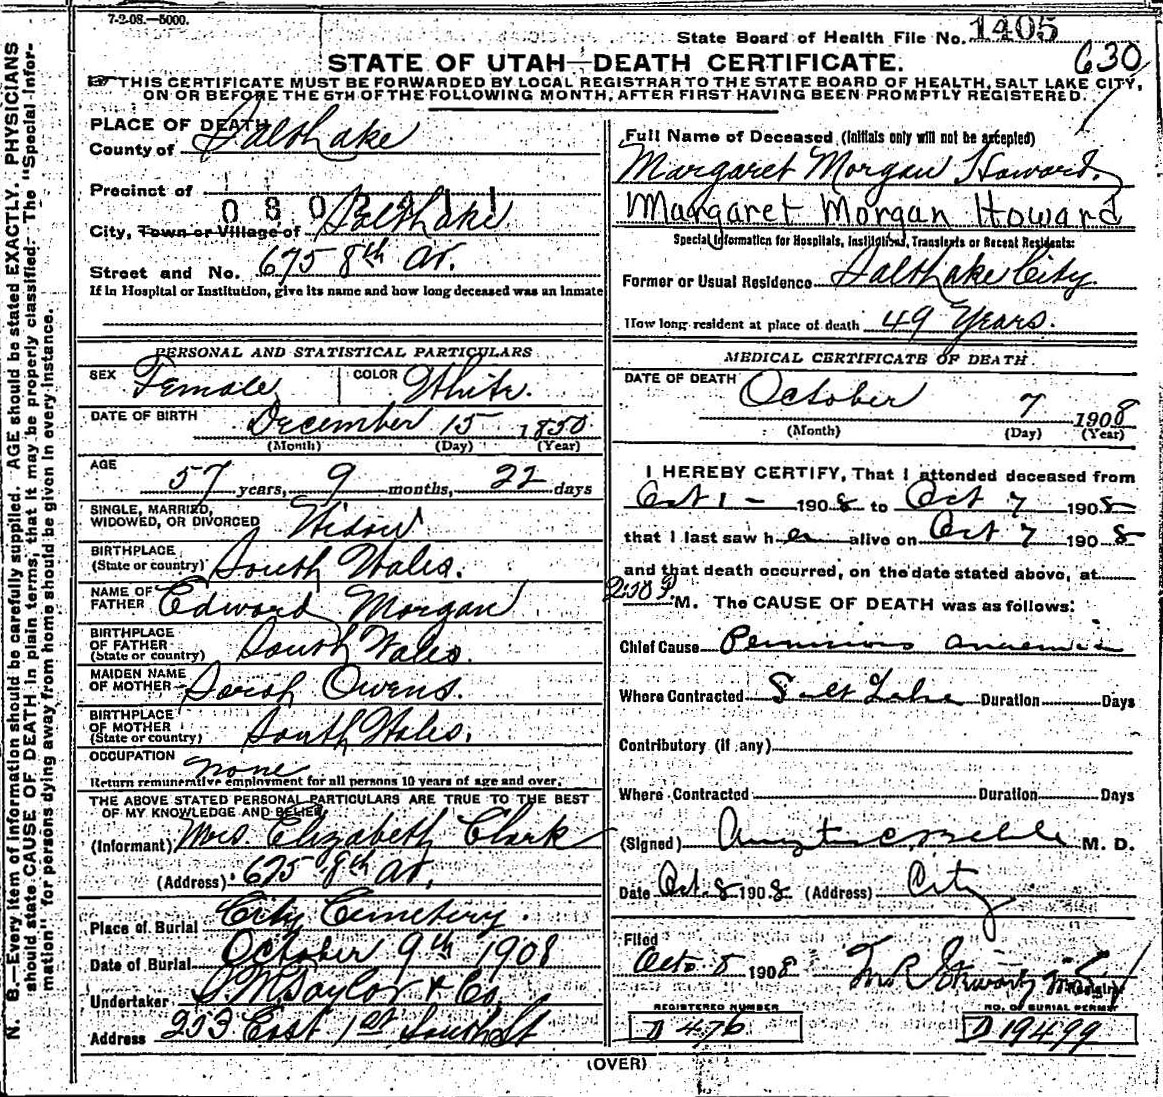 7-2-08.—5000.
State Board of Health File No. 1405
630
STATE OF UTAH—DEATH CERTIFICATE.
THIS CERTIFICATE MUST BE FORWARDED BY LOCAL REGISTRAR TO THE STATE BOARD OF HEALTH, SALT LAKE CITY,
ON OR BEFORE THE 5TH OF THE FOLLOWING MONTH, AFTER FIRST HAVING BEEN PROMPTLY REGISTERED.
N. B.—Every item of information should be carefully supplied. AGE should be stated EXACTLY. PHYSICIANS
should state CAUSE OF DEATH in plain terms, that it may be properly classified. The "Special Infor-
mation" for persons dying away from home should be given in every instance.
PLACE OF DEATH
County of Salt Lake
Precinct of
City, Town or Village of Salt Lake
Street and No. 675 8th Av.
If in Hospital or Institution, give its name and how long deceased was an inmate
PERSONAL AND STATISTICAL PARTICULARS
SEX Female COLOR White.
DATE OF BIRTH December 15 1850
(Month) (Day) (Year)
AGE
57 years, 9 months, 22 days
SINGLE, MARRIED,
WIDOWED, OR DIVORCED Widow
BIRTHPLACE
(State or country) South Wales.
NAME OF
FATHER Edward Morgan
BIRTHPLACE
OF FATHER
(State or country) South Wales.
MAIDEN NAME
OF MOTHER Sarah Owens.
BIRTHPLACE
OF MOTHER
(State or country) South Wales.
OCCUPATION none
Return remunerative employment for all persons 10 years of age and over.
THE ABOVE STATED PERSONAL PARTICULARS ARE TRUE TO THE BEST
OF MY KNOWLEDGE AND BELIEF
(Informant) Mrs. Elizabeth Clark
(Address) 675 8th Av.
Place of Burial City Cemetery.
Date of Burial October 9th 1908
Undertaker S. M. Taylor & Co.
Address 253 East 1st South St
Full Name of Deceased (Initials only will not be accepted)
Margaret Morgan Howard.
Margaret Morgan Howard
Special Information for Hospitals, Institutions, Transients or Recent Residents:
Former or Usual Residence Salt Lake City
How long resident at place of death 49 Years.
MEDICAL CERTIFICATE OF DEATH
DATE OF DEATH October 7 1908
(Month) (Day) (Year)
I HEREBY CERTIFY, That I attended deceased from
Oct 1 - 1908 to Oct 7 1908
that I last saw her alive on Oct 7 1908
and that death occurred, on the date stated above, at
M. The CAUSE OF DEATH was as follows:
Chief Cause Pernicious anaemia
Where Contracted Salt Lake Duration Days
Contributory (if any)
Where Contracted Duration Days
(Signed) M. D.
Date Oct. 8 1908 (Address) City
Filed
Oct. 8 1908
Registrar
REGISTERED NUMBER
D 476
NO. OF BURIAL PERMIT
D 19499
(OVER)